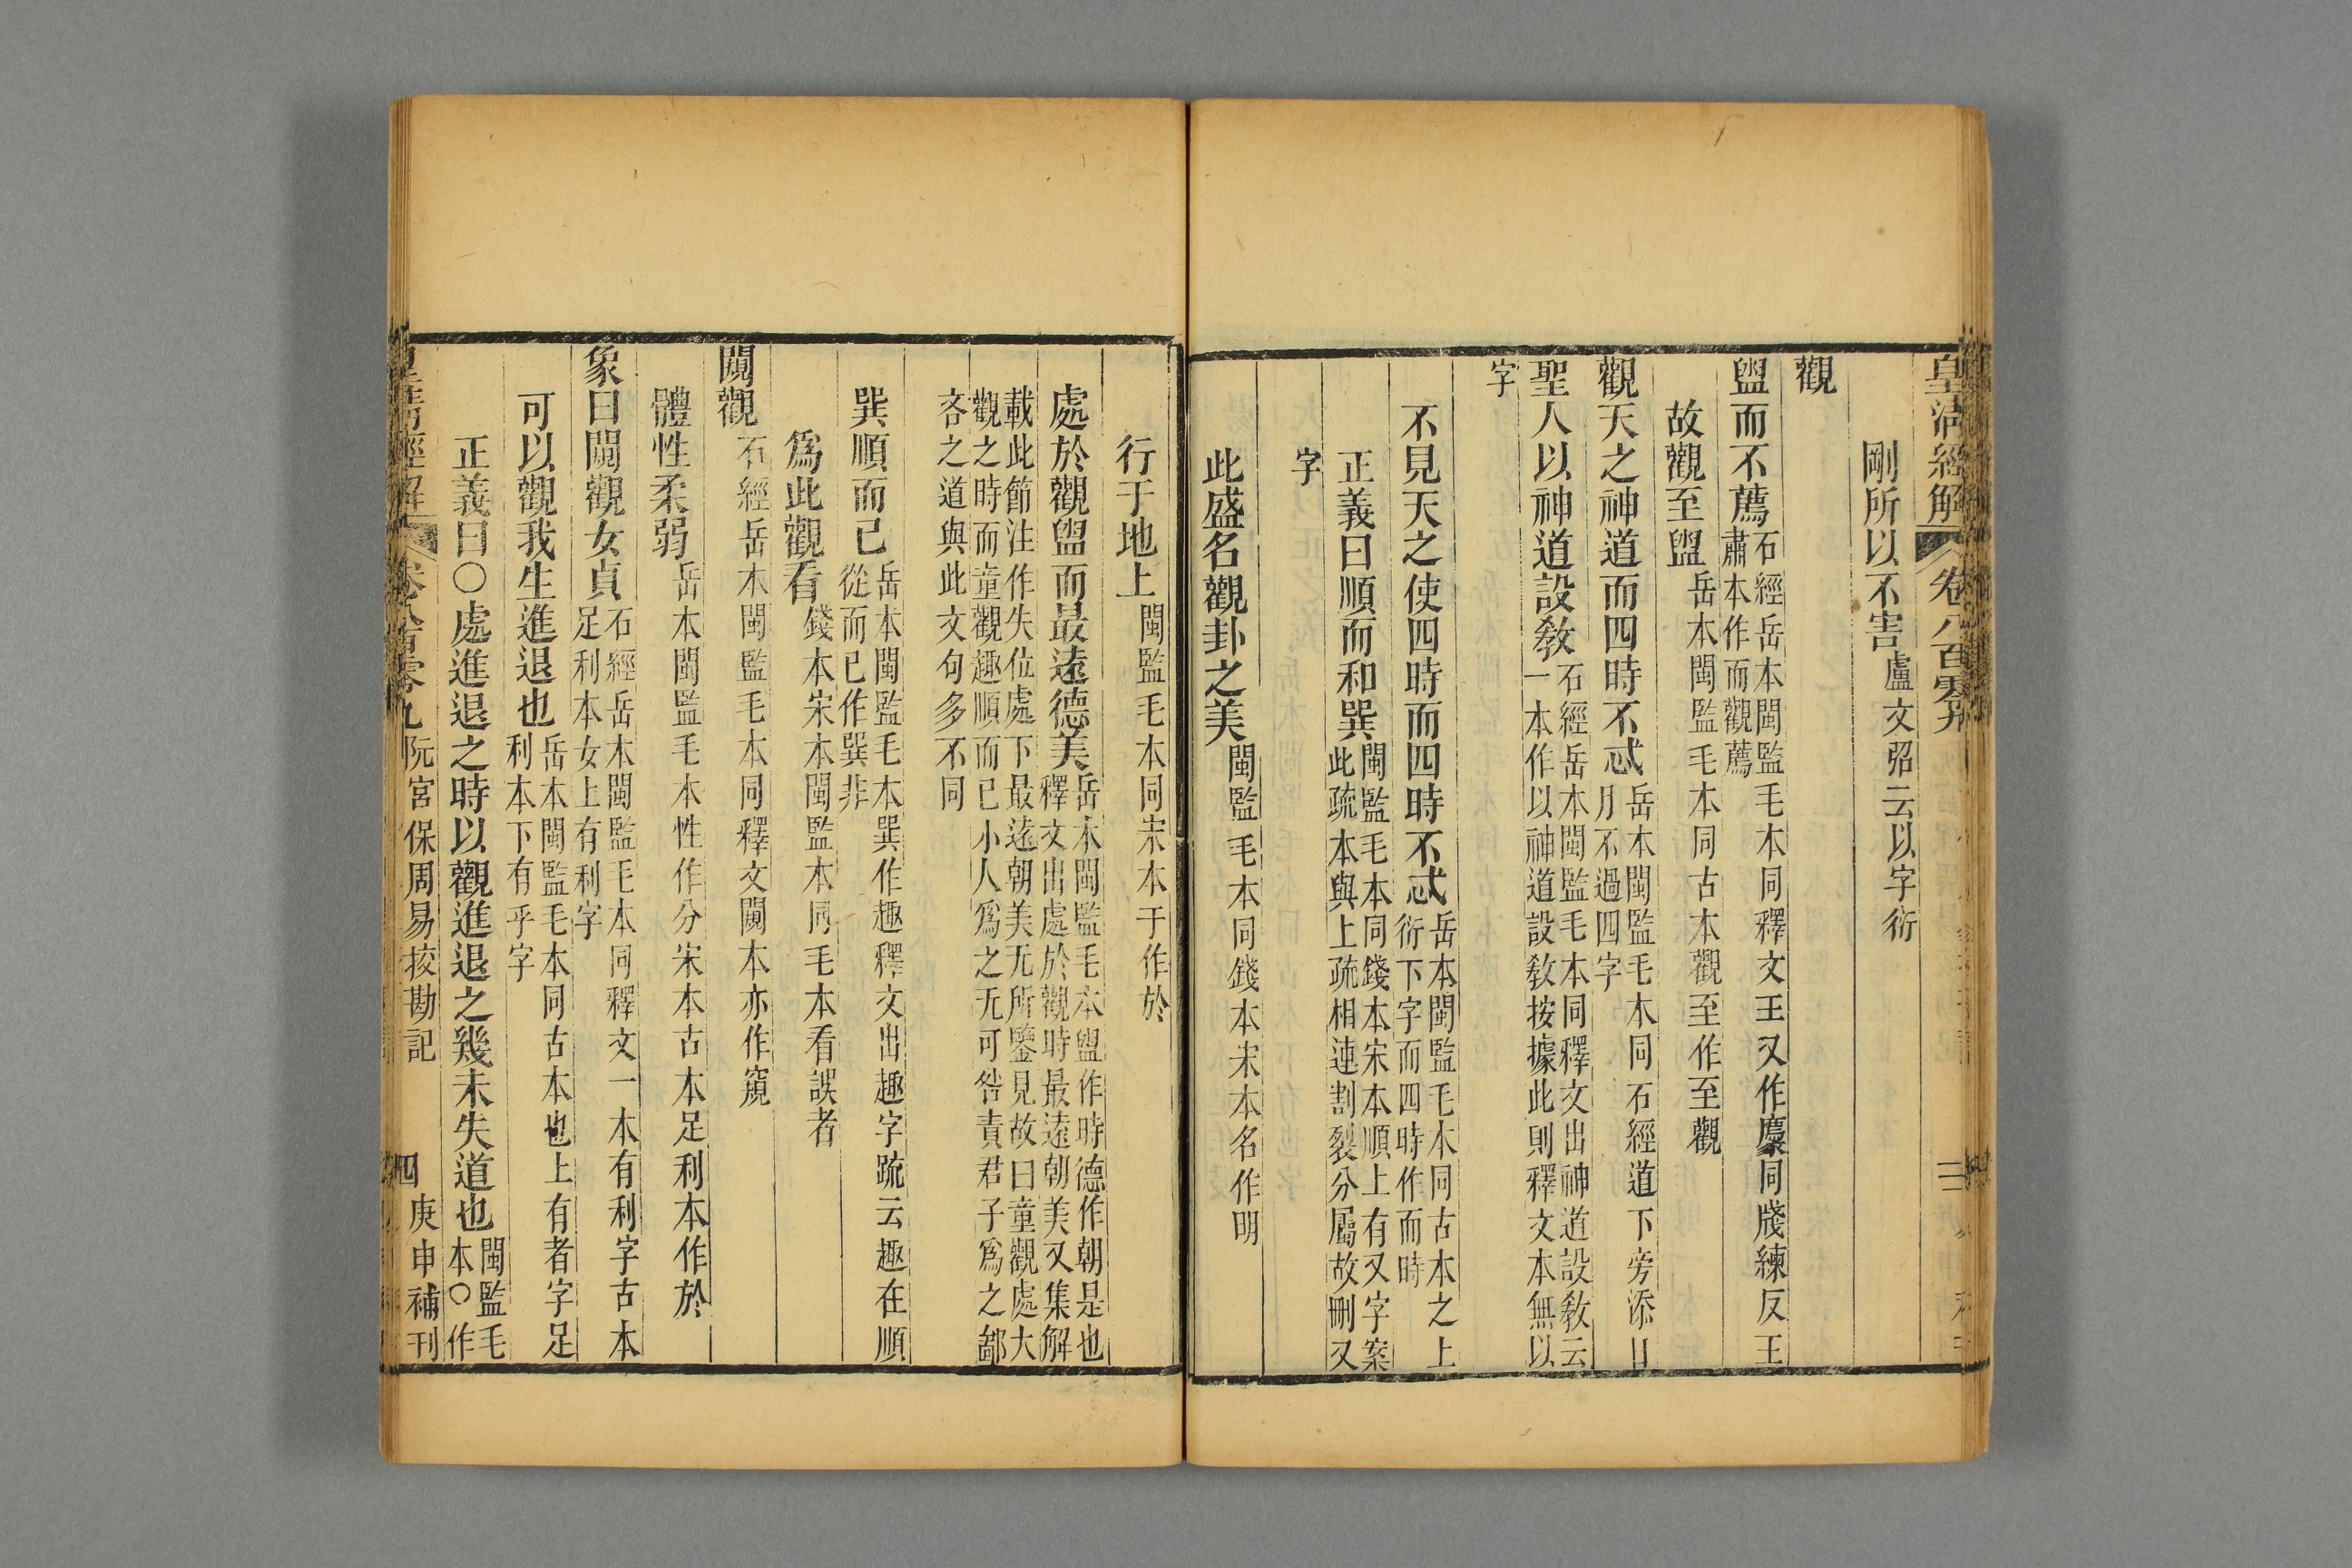 皇淸經解 卷八百零九 三
剛所以不害盧文弨云以字衍
觀
盥而不薦石經岳本閩監毛本同釋文王又作𢊁同牋練反王
肅本作而觀薦
故觀至盥岳本閩監毛本同古本觀至作至觀
觀天之神道而四時不忒岳本閩監毛本同石經道下旁添日
月不過四字
聖人以神道設敎石經岳本閩監毛本同釋文出神道設敎云
一本作以神道設敎按據此則釋文本無以
字
不見天之使四時而四時不忒岳本閩監毛本同古本之上
衍下字而四時作而時
正義曰順而和巽閩監毛本同錢本宋本順上有又字案
此疏本與上疏相連割裂分屬故刪又
字
此盛名觀卦之美閩監毛本同錢本宋本名作明
行于地上閩監毛本同宋本于作於
處於觀盥而最遠德美岳本閩監毛本盥作時德作朝是也
釋文出處於觀時最遠朝美又集解
載此節注作失位處下最遠朝美无所鑒見故曰童觀處大
觀之時而童觀趣順而已小人爲之无可咎責君子爲之鄙
吝之道與此文句多不同
巽順而已岳本閩監毛本巽作趣釋文出趣字疏云趣在順
從而已作巽非
爲此觀看錢本宋本閩監本同毛本看誤者
闚觀石經岳本閩監毛本同釋文闚本亦作窺
體性柔弱岳本閩監毛本性作分宋本古本足利本作於
象曰闚觀女貞石經岳本閩監毛本同釋文一本有利字古本
足利本女上有利字
可以觀我生進退也岳本閩監毛本同古本也上有者字足
利本下有乎字
正義曰○處進退之時以觀進退之幾未失道也閩監毛
本○作
皇淸經解 卷八百零九 阮宮保周易挍勘記 四 庚申補刊